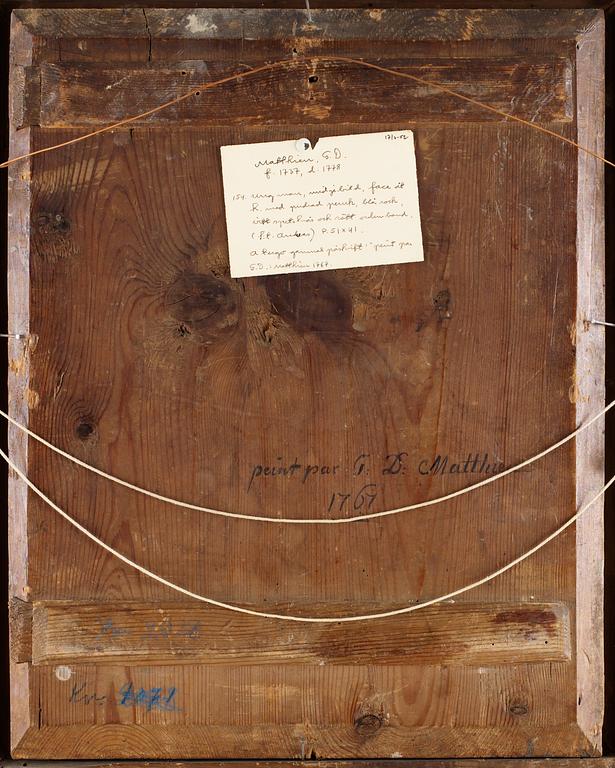 17/2-52
Matthieu, G.D.
f. 1737, d. 1778
154. Ung man, midjebild, face åt
h. med pudrad peruk, blå rock,
vitt spetskrås och rött ordensband.
P. 51x41.
A tergo gammal påskrift: "peint par
G.D. Matthieu 1767.
peint par G: D: Matthieu
1767